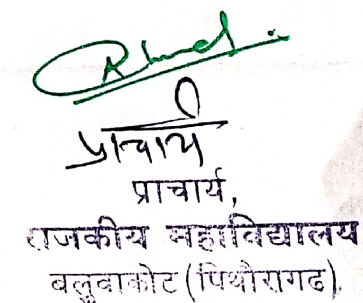 प्राचार्य
प्राचार्य,
राजकीय महाविद्यालय
बलुवाकोट (पिथौरागढ)